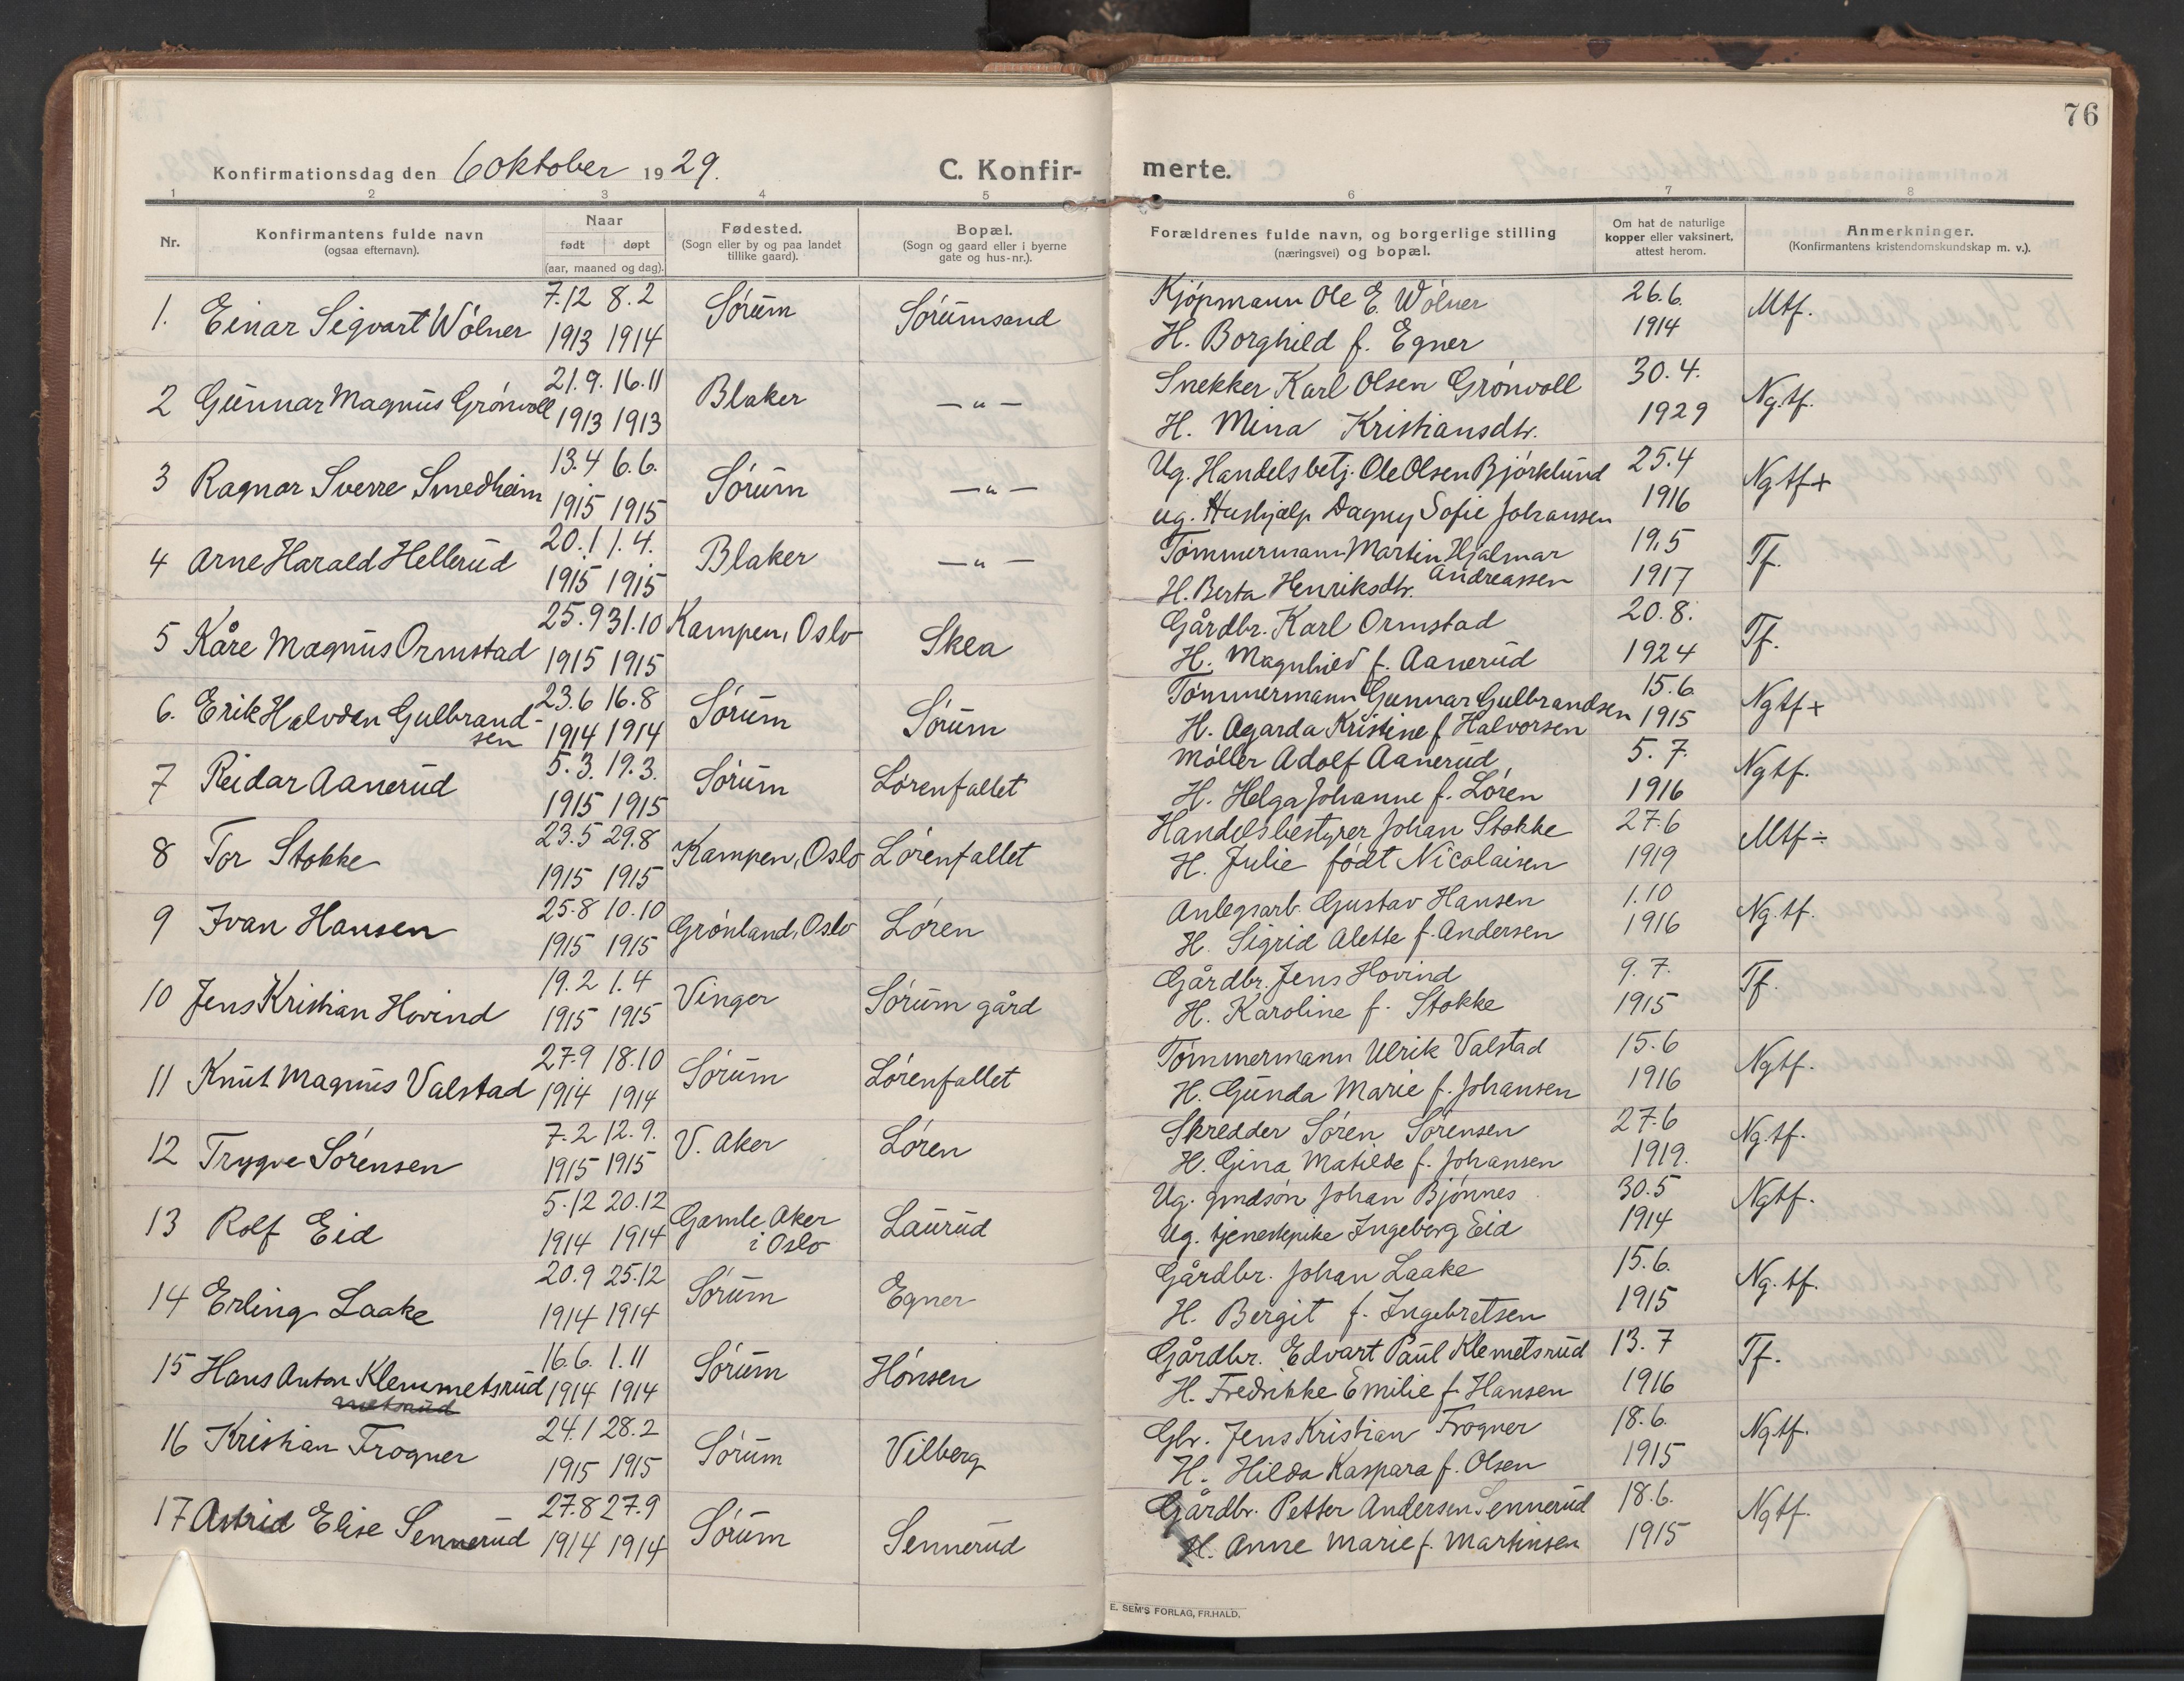 76
Konfirmationsdag den 6 oktober 1929.
C. Konfir-merte.
1 2 3 4 5 6 7 8
Nr.
Konfirmantens fulde navn
(ogsaa efternavn).
Naar
født døpt
(aar, maaned og dag).
Fødested.
(Sogn eller by og paa landet
tillike gaard).
Bopæl.
(Sogn og gaard eller i byerne
gate og hus-nr.).
Forældrenes fulde navn, og borgerlige stilling
(næringsvei) og bopæl.
Om hat de naturlige
kopper eller vaksinert,
attest herom.
Anmerkninger.
(Konfirmantens kristendomskundskap m. v.).
7.12 8.2 Kjøpmann Ole E. Wølner 26.6.
1. Einar Sigvart Wølner Sørum Sørumsand Mtf.
1913 1914 H. Borghild f. Egner 1914
21.9. 16.11 Snekker Karl Olsen Grønvoll 30.4.
2 Gunnar Magnus Grønvoll Blaker —"— Ng.tf.
1913 1913 H. Mina Kristiansdtr. 1929
13.4 6.6. Ug. Handelsbetj. Ole Olsen Bjørklund 25.4
3 Ragnar Sverre Smedheim Sørum —"— Ngtf+
1915 1915 ug. Hushjælp Dagny Sofie Johansen 1916
20.1 1.4. Tømmermann Martin Hjalmar 19.5
4 Arne Harald Hellerud Blaker —"— Andreassen Tf.
1915 1915 H. Berta Henriksdtr. 1917
25.9 31.10 Kampen, Oslo Gårdbr. Karl Ormstad 20.8.
5 Kåre Magnus Ormstad Skea Tf.
1915 1915 H. Magnhild f. Aanerud 1924
23.6 16.8 Tømmermann Gunnar Gulbrandsen 15.6.
6. Erik Halvdan Gulbrand- Sørum Sørum Ngtf+
sen 1914 1914 H. Agarda Kristine f Halvorsen 1915
5.3. 19.3. Møller Adolf Aanerud 5.7.
7 Reidar Aanerud Sørum Lørenfallet Ngtf.
1915 1915 H. Helga Johanne f. Løren 1916
23.5 29.8 Handelsbestyrer Johan Stokke 27.6
8 Tor Stokke Kampen, Oslo Lørenfallet Mtf÷
1915 1915 H. Julie født Nicolaisen 1919
25.8 10.10 Anlegsarb. Gustav Hansen 1.10
9 Ivan Hansen Grønland, Oslo Løren Ng.tf.
1915 1915 H. Sigrid Alette f. Andersen 1916
19.2 1.4 Gårdbr. Jens Hovind 9.7.
10 Jens Kristian Hovind Vinger Sørum gård Tf.
1915 1915 H. Karoline f. Stokke 1915
27.9 18.10 Tømmermann Ulrik Valstad 15.6
11 Knut Magnus Valstad Sørum Lørenfallet Ngtf.
1914 1914 H. Gunda Marie f. Johansen 1916
7.2 12.9. Skredder Søren Sørensen 27.6
12 Trygve Sørensen V. Aker Løren Ng.tf.
1915 1915 H. Gina Matilde f. Johansen 1919.
5.12 20.12 Ug. gmdsøn Johan Bjønnes 30.5
13 Rolf Eid Gamle Aker Laurud Ngtf.
i Oslo
1914 1914 Ug. tjenestepike Ingeborg Eid 1914
20.9 25.12 Gårdbr. Johan Laake 15.6.
14 Erling Laake Sørum Egner Ng.tf.
1914 1914 H. Bergit f. Ingebretsen 1915
16.6. 1.11 Gårdbr. Edvart Paul Klemetsrud 13.7
15 Hans Anton Klemmetsrud Sørum Hønsen Tf.
1914 1914 H. Fredrikke Emilie f. Hansen 1916
24.1 28.2 Gbr. Jens Kristian Frogner 18.6.
16 Kristian Frogner Sørum Vilberg Ngtf.
1915 1915 H. Hilda Kaspara f. Olsen 1915
27.8 27.9 Gårdbr. Petter Andersen Sennerud 18.6.
17 Astrid Elise Sennerud Sørum Sennerud Ngtf.
1914 1914 H. Anne Marie f. Martinsen 1915
E. SEM'S FORLAG, FR.HALD.